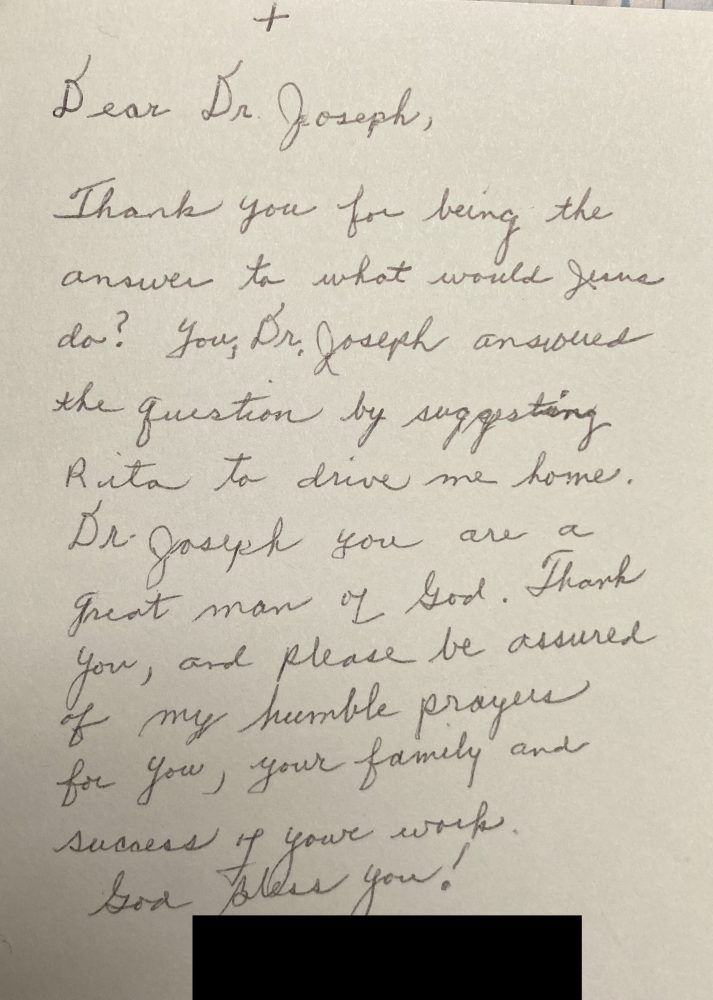 +
Dear Dr. Joseph,
Thank you for being the
answer to what would Jesus
do? You, Dr. Joseph answered
the question by suggesting
Rita to drive me home.
Dr. Joseph you are a
great man of God. Thank
you, and please be assured
of my humble prayers
for you, your family and
success of your work.
God Bless you!